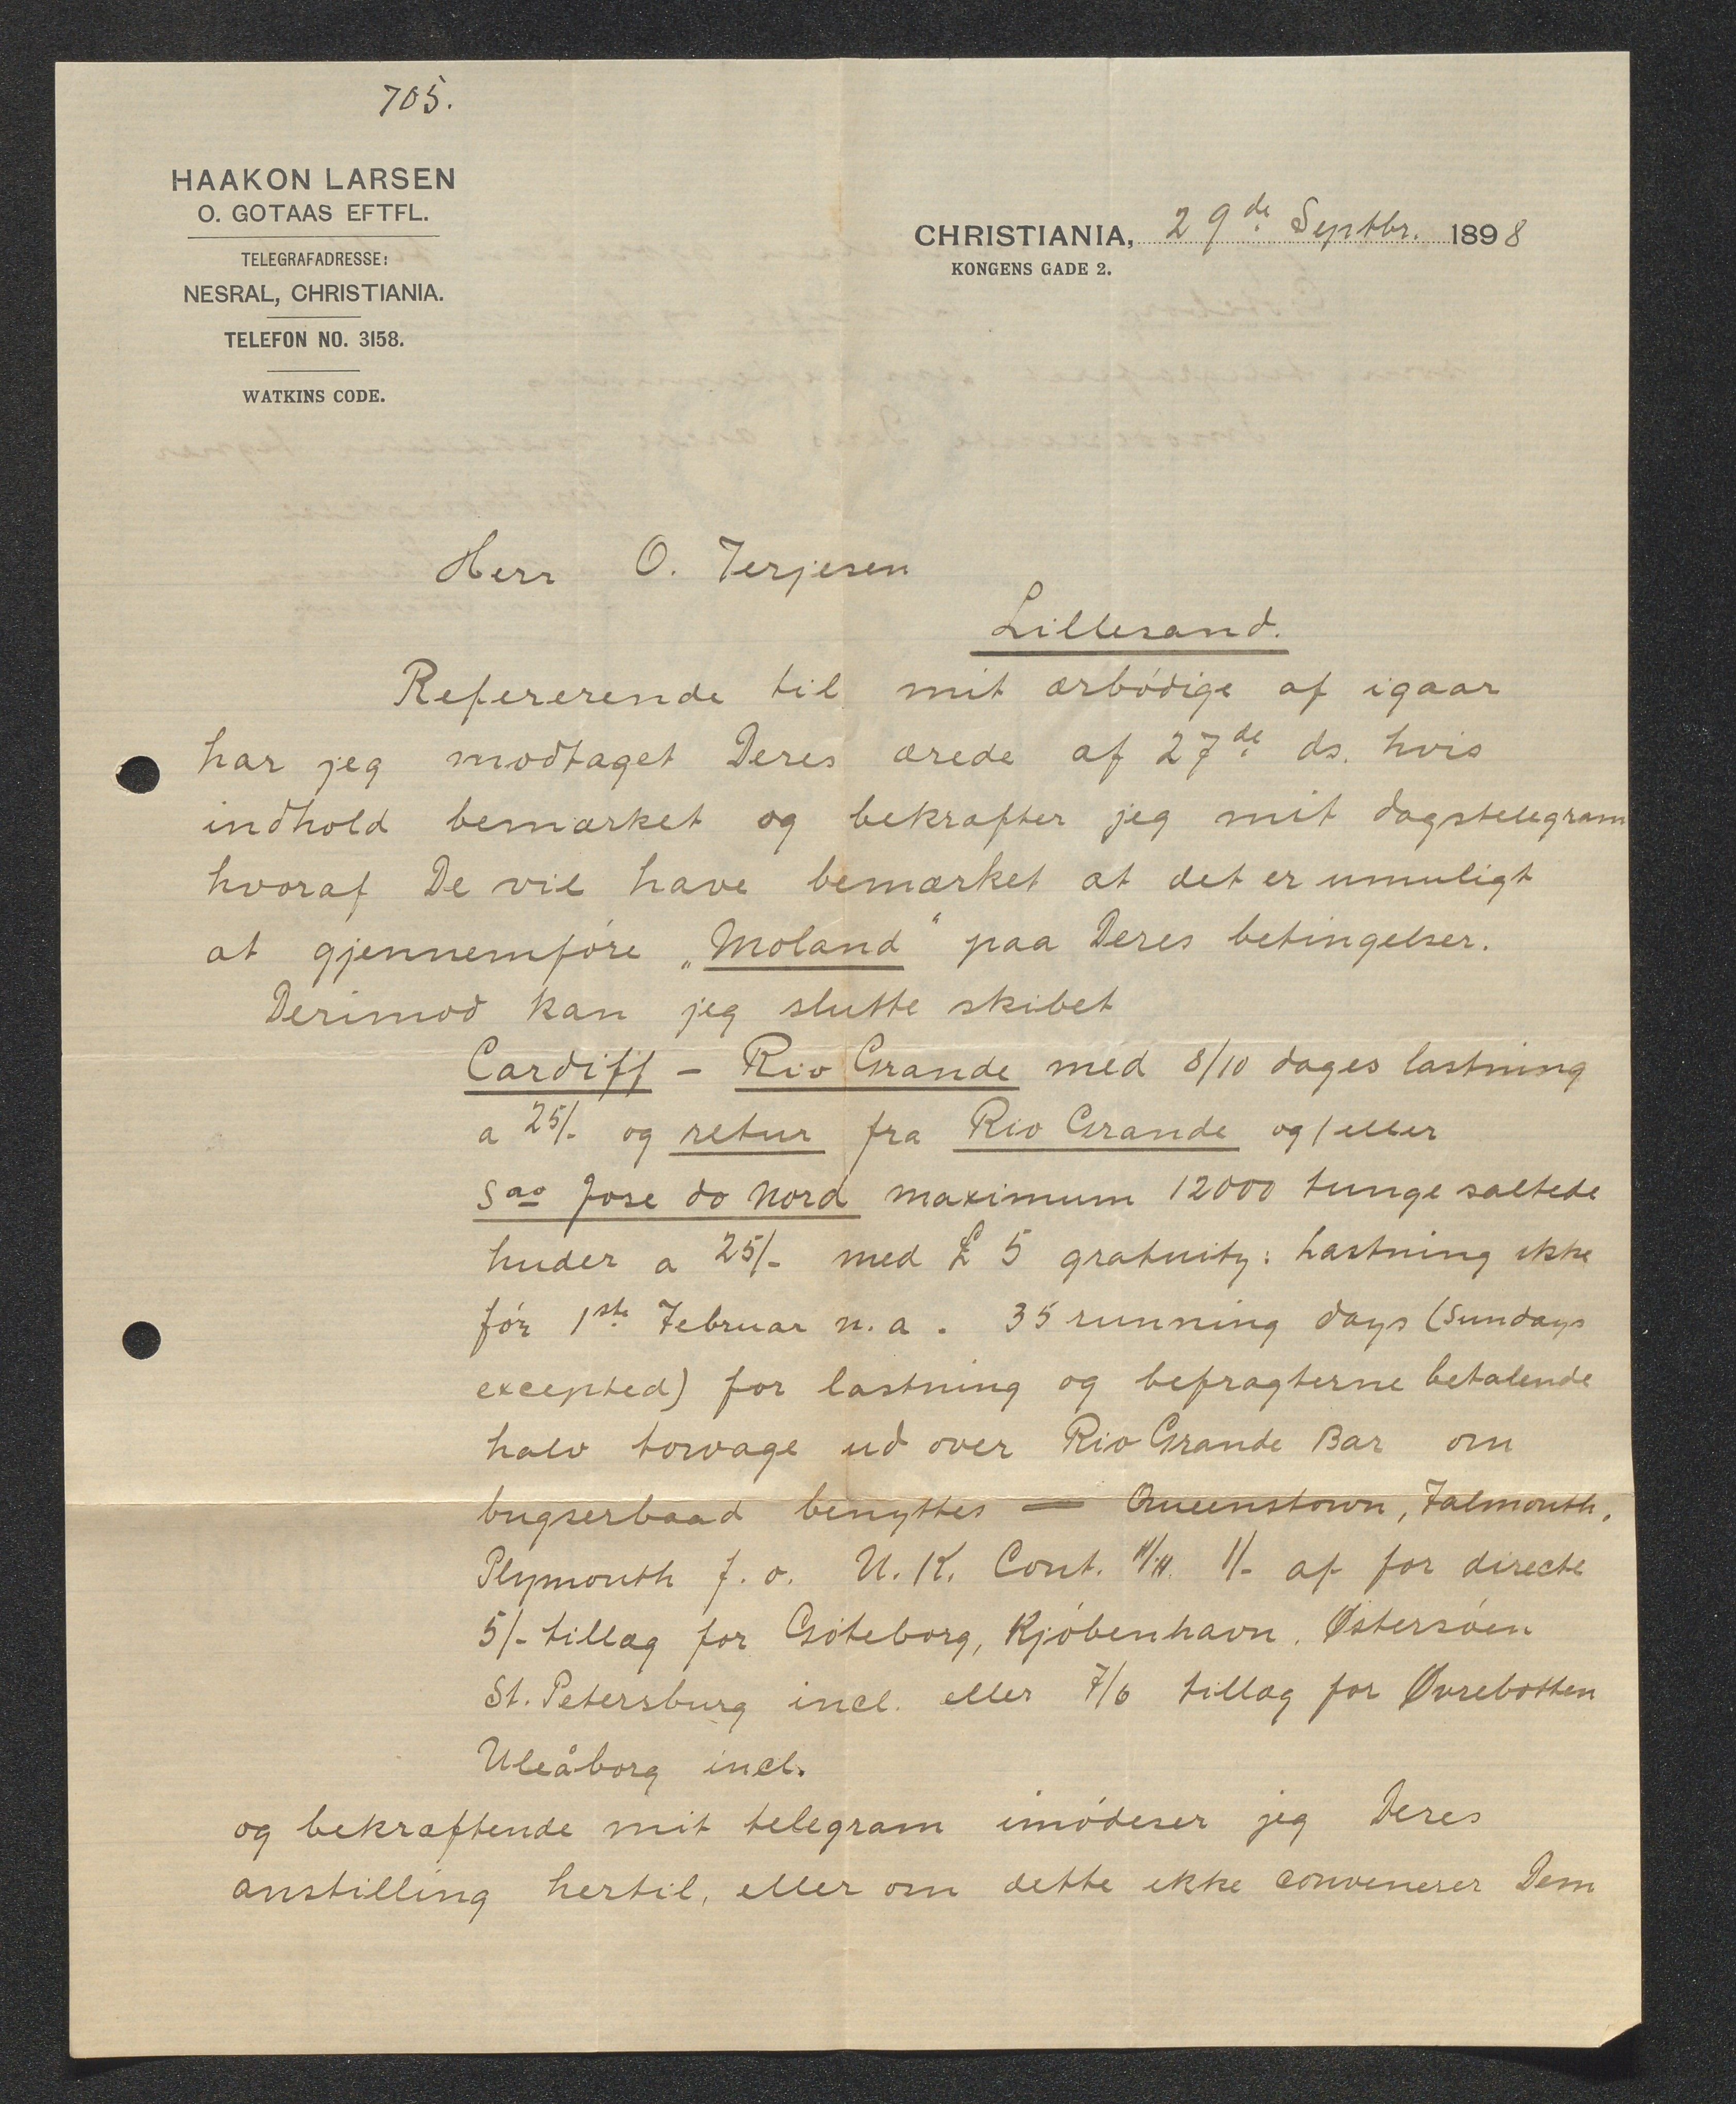 705.
HAAKON LARSEN
O. GOTAAS EFTFL.
TELEGRAFADRESSE:
NESRAL, CHRISTIANIA.
TELEFON NO. 3158.
WATKINS CODE.
CHRISTIANIA, 29de Septbr. 1898
KONGENS GADE 2.
Herr O. Terjesen
Lillesand.
Refererende til mit ærbódige af igaar
har jeg modtaget Deres ærede af 27de ds. hvis
indhold bemærket og bekræfter jeg mit dagstelegram
hvoraf De vil have bemærket at det er umuligt
at gjennemfóre „Moland" paa Deres betingelser.
Derimod kan jeg slutte skibet
Cardiff – Rio Grande med 8/10 dages lastning
a 25/- og retur fra Rio Grande og/eller
Sao Jose do Nord maximum 12000 tunge saltede
huder a 25/- med £ 5 gratuity: Lastning ikke
fór 1ste Februar n.a. 35 running days (Sundays
excepted) for lastning og befragterne betalende
halv towage ud over Rio Grande Bar om
bugserbaad benyttes = Queenstown, Falmouth,
Plymouth f.o. U.K. Cont. H/H. 1/- af for directe
5/- tillæg for Góteborg, Kjóbenhavn. Østersóen
St. Petersburg incl. eller 7/6 tillæg for Øvrebotten
Uleåborg incl.
og bekræftende mit telegram imódeser jeg Deres
anstilling hertil, eller om dette ikke convenerer Dem